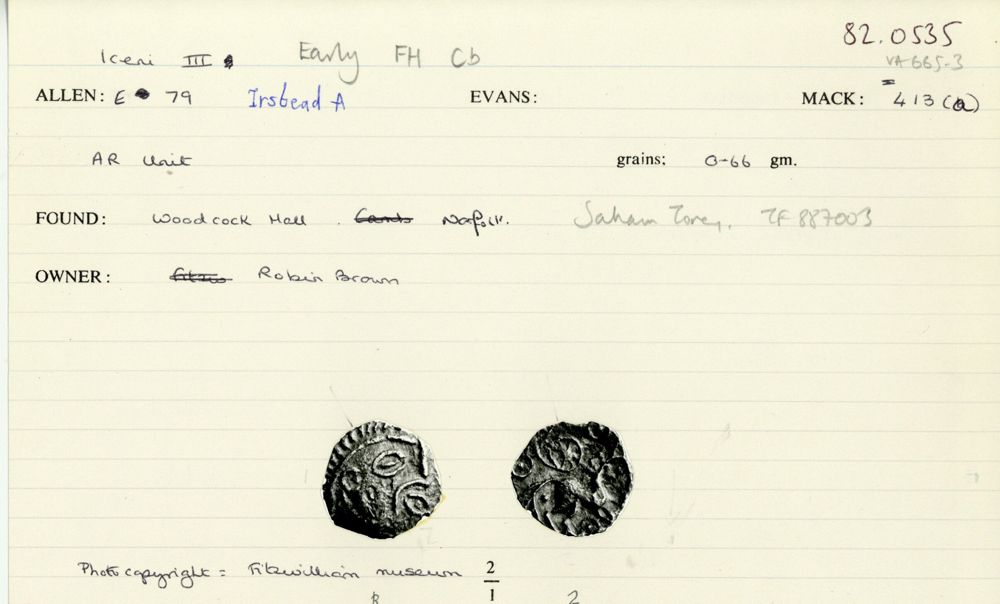 82.0535
Iceni III Early FH Cb VA 665-3
ALLEN: E 79 Irstead A EVANS: MACK: 413(a)
AR Unit grains: 0-66 gm.
FOUND: Woodcock Hall. Cands Norfolk. Saham Toney, TF 887003
OWNER: Robin Brown
Photo copyright = Fitzwilliam museum 2/1
R 2